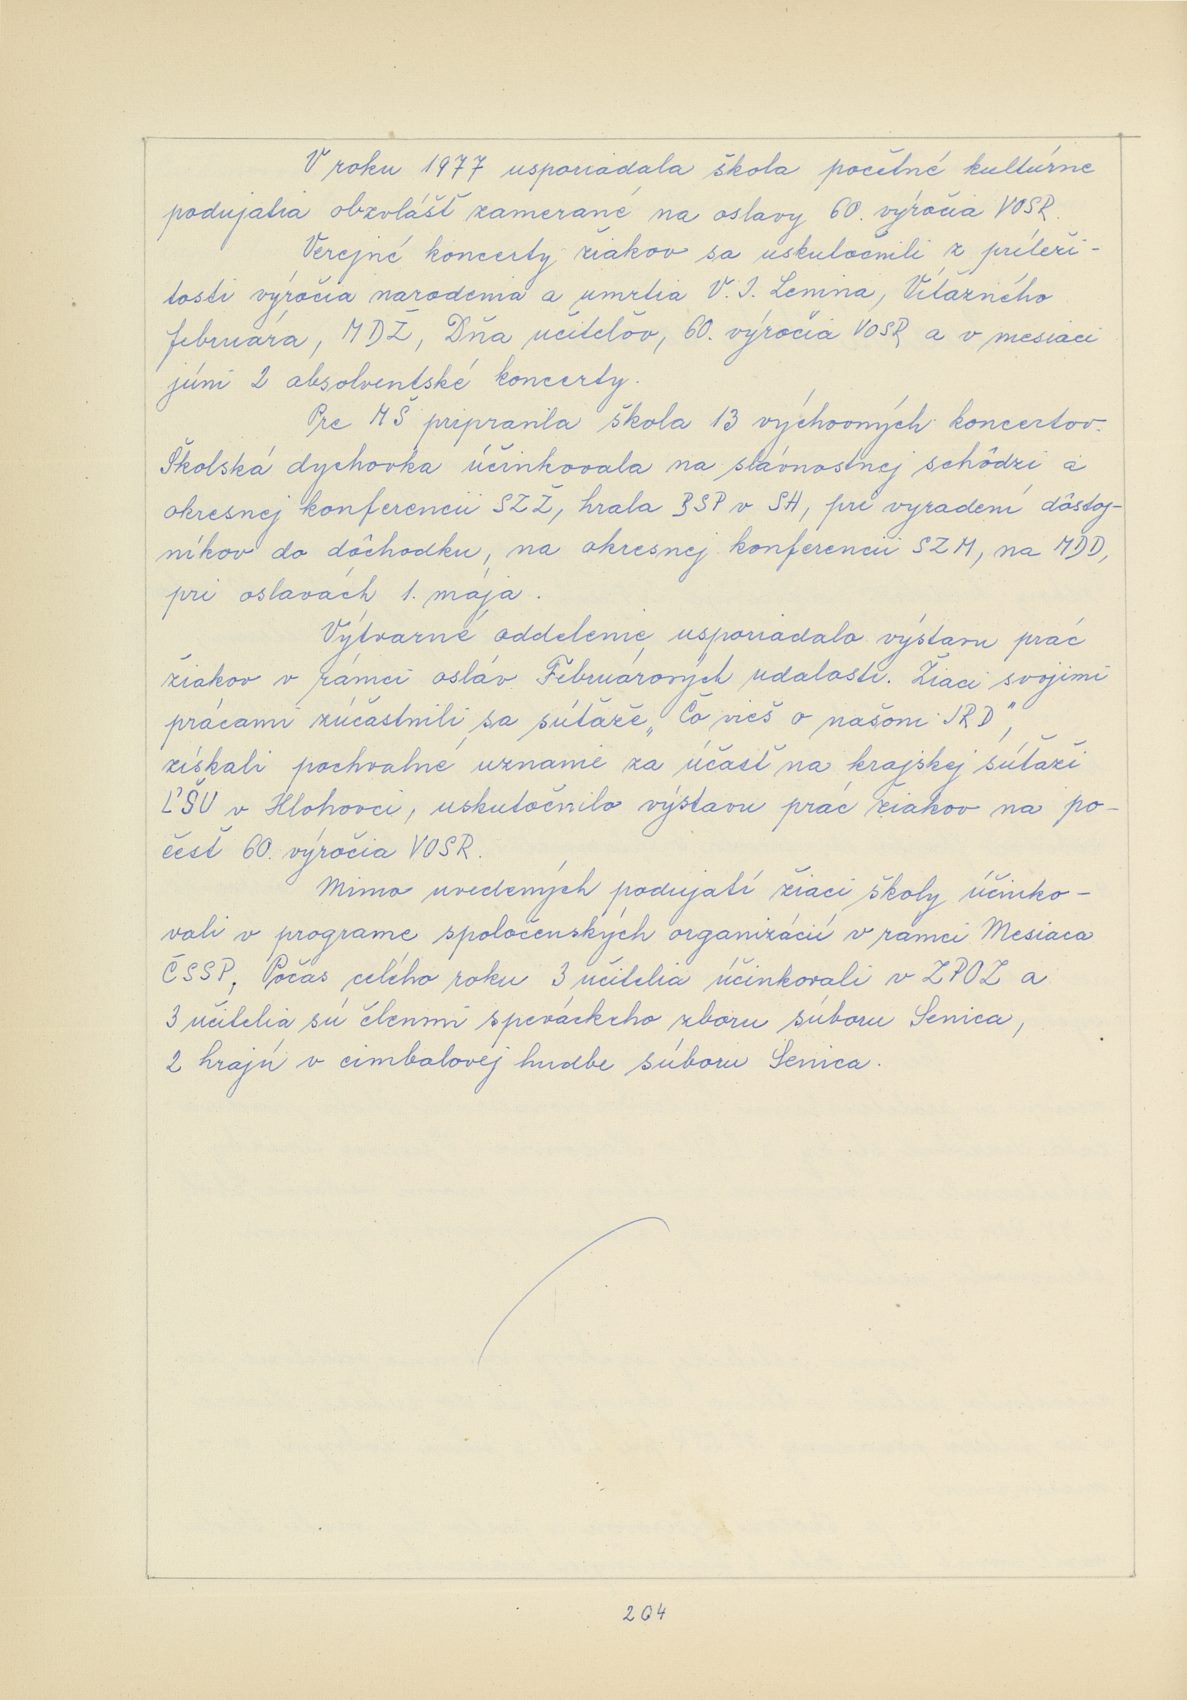 V roku 1977 usporiadala škola početné kultúrne
podujatia obzvlášť zamerané na oslavy 60. výročia VOSR.
Verejné koncerty žiakov sa uskutočnili z príleži-
tosti výročia narodenia a úmrtia V. I. Lenina, Víťazného
februára, MDŽ, Dňa učiteľov, 60. výročia VOSR a v mesiaci
júni 2 absolventské koncerty.
Pre MŠ pripravila škola 13 výchovných koncertov.
Školská dychovka účinkovala na slávnostnej schôdzi a
okresnej konferencii SZŽ, hrala BSP v SH, pri vyradení dôstoj-
níkov do dôchodku, na okresnej konferencii SZM, na MDD,
pri oslavách 1. mája.
Výtvarné oddelenie usporiadalo výstavu prác
žiakov v rámci osláv Februárových udalostí. Žiaci svojimi
prácami zúčastnili sa súťaže „Čo vieš o našom JRD",
získali pochvalné uznanie za účasť na krajskej súťaži
ĽŠU v Hlohovci, uskutočnilo výstavu prác žiakov na po-
česť 60. výročia VOSR.
Mimo uvedených podujatí žiaci školy účinko-
vali v programe spoločenských organizácií v rámci Mesiaca
ČSSP. Počas celého roku 3 učitelia účinkovali v ZPOZ a
3 učitelia sú členmi speváckeho zboru súboru Senica,
2 hrajú v cimbalovej hudbe súboru Senica.
204